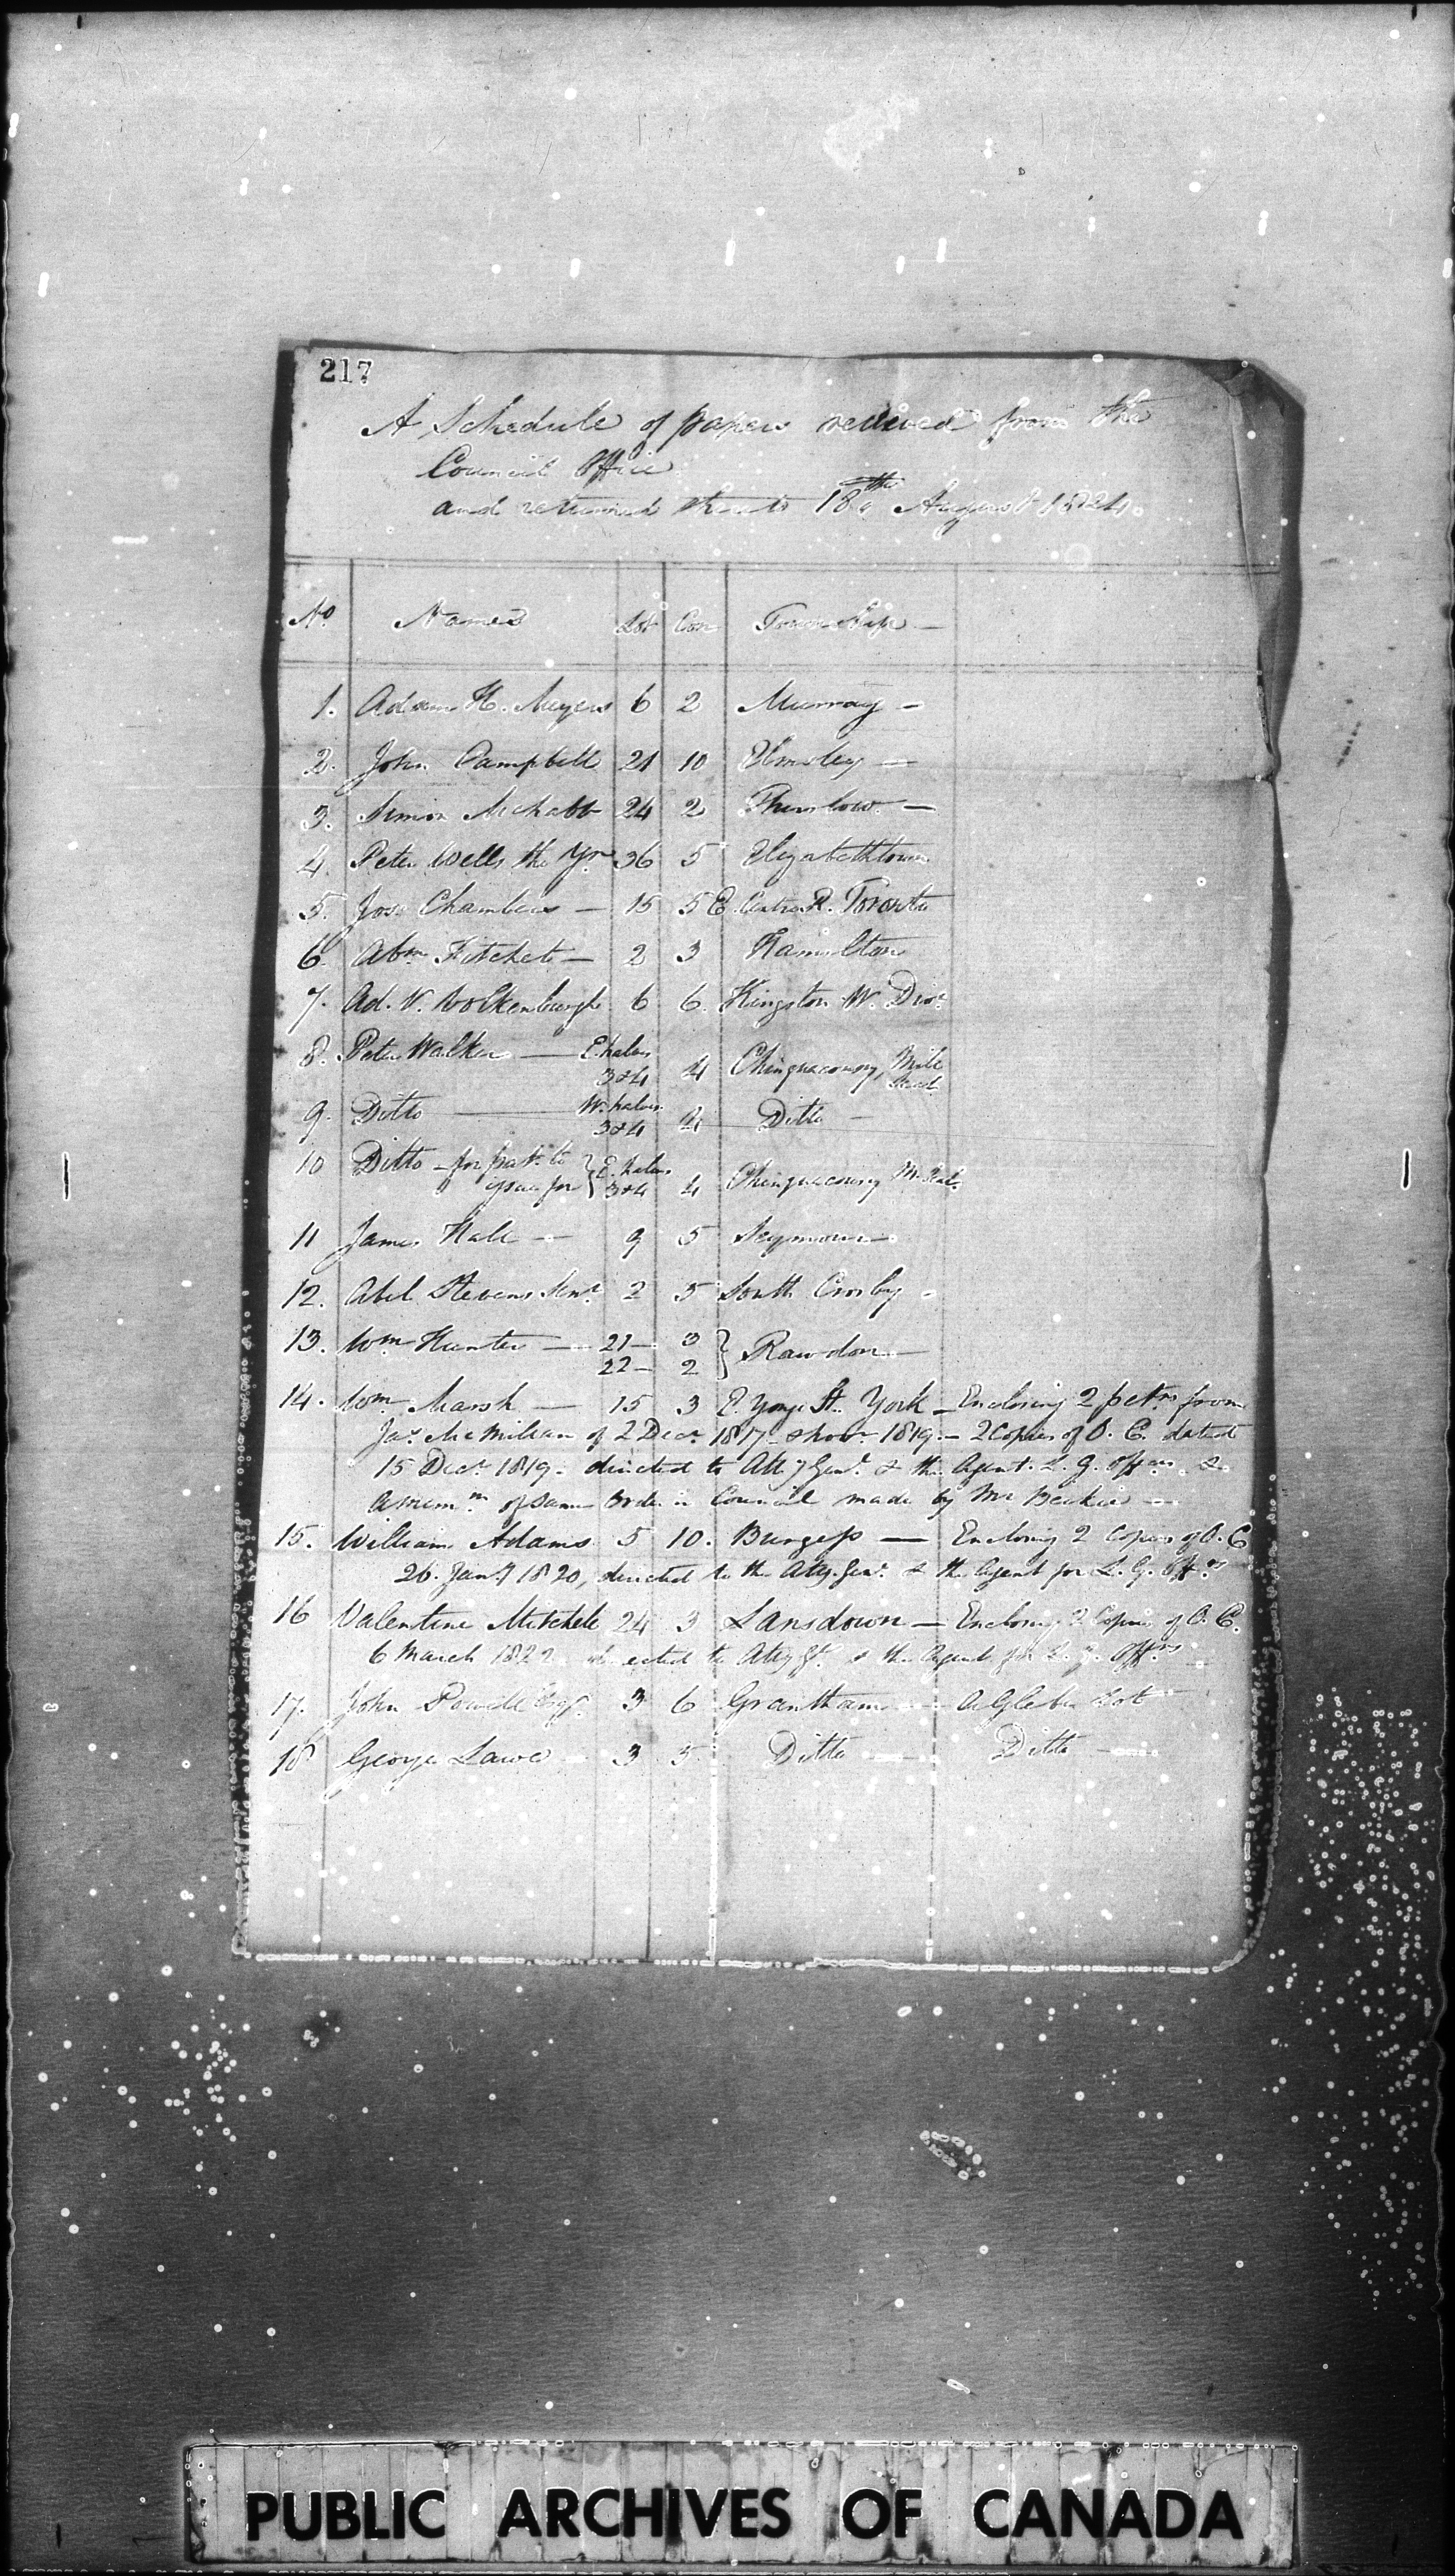 217
A Schedule of papers received from the
Council Office
and returned thereto 18th August 1824.
No. Names Lot Con Township —
1. Adam H. Meyers 6 2 Murray —
2. John Campbell 21 10 Elmsley —
3. Simon McNabb 24 2 Thurlow —
4. Peter Wells the Yr 36 5 Elizabethtown
5. Jos. Chambers — 15 5 E. Centre R. Toronto
6. Abm Fitchett — 2 3 Hamilton
7. Ad. V. Volkenburgh 6 6. Kingston W. Divn
8. Peter Walker — E. halves 3&4 4 Chinguacousy, Mile Head
9. Ditto — W. halves 3&4 Ditto —
10 Ditto — for pat. to issue for } E. halves 3&4 4 Chinguacousy
11 James Hall — 9 5 Seymour —
12. Abel Stevens Senr. 2 5 South Crosby —
13. Wm Hunter — 21 — 3
22 — 2 } Rawdon —
14. Wm Marsh — 15 3 E. Yonge St. York — Enclosing 2 petns from
Jas. McMillan of 2 Decr 1817 & Novr 1819 — 2 Copies of O. C. dated
15 Decr 1819. directed to Atty Genl. & the Agent. L. G. Offers &
a mem.m of same Order in Council made by Mr Beikie —
15. William Adams 5 10. Burgess — Enclosing 2 Copies of O. C
26. Jany 1820, directed to the Atty. Genl. & the Agent for L. G. Offrs
16 Valentine Mitchell 24 3 Lansdown — Enclosing 2 Copies of O. C.
6 March 1822 directed to Atty Gl. & the Agent for L. G. Offrs
17. John Powell Esqr. 3 6 Grantham — A Glebe Lot
18 George Lawe 3 5 Ditto — Ditto —
PUBLIC ARCHIVES OF CANADA